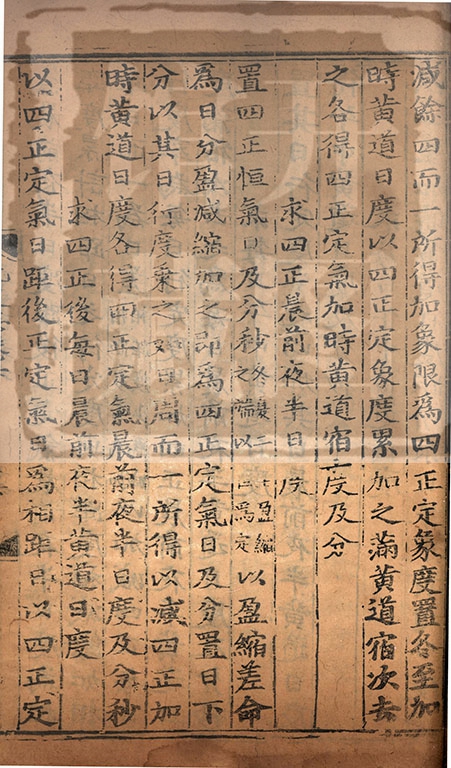 減餘四而一所得加象限爲四正定象度置冬至加
時黃道日度以四正定象度累加之滿黃道宿次去
之各得四正定氣加時黃道宿度及分
求四正晨前夜半日度
置四正恒氣日及分秒冬夏二至盈縮之端以恒爲定以盈縮差命
爲日分盈減縮加之即爲四正定氣日及分置日下
分以其日行度乘之如日周而一所得以減四正加
時黃道日度各得四正定氣晨前夜半日度及分秒
求四正後每日晨前夜半黃道日度
以四正定氣日距後正定氣日爲相距日以四正定